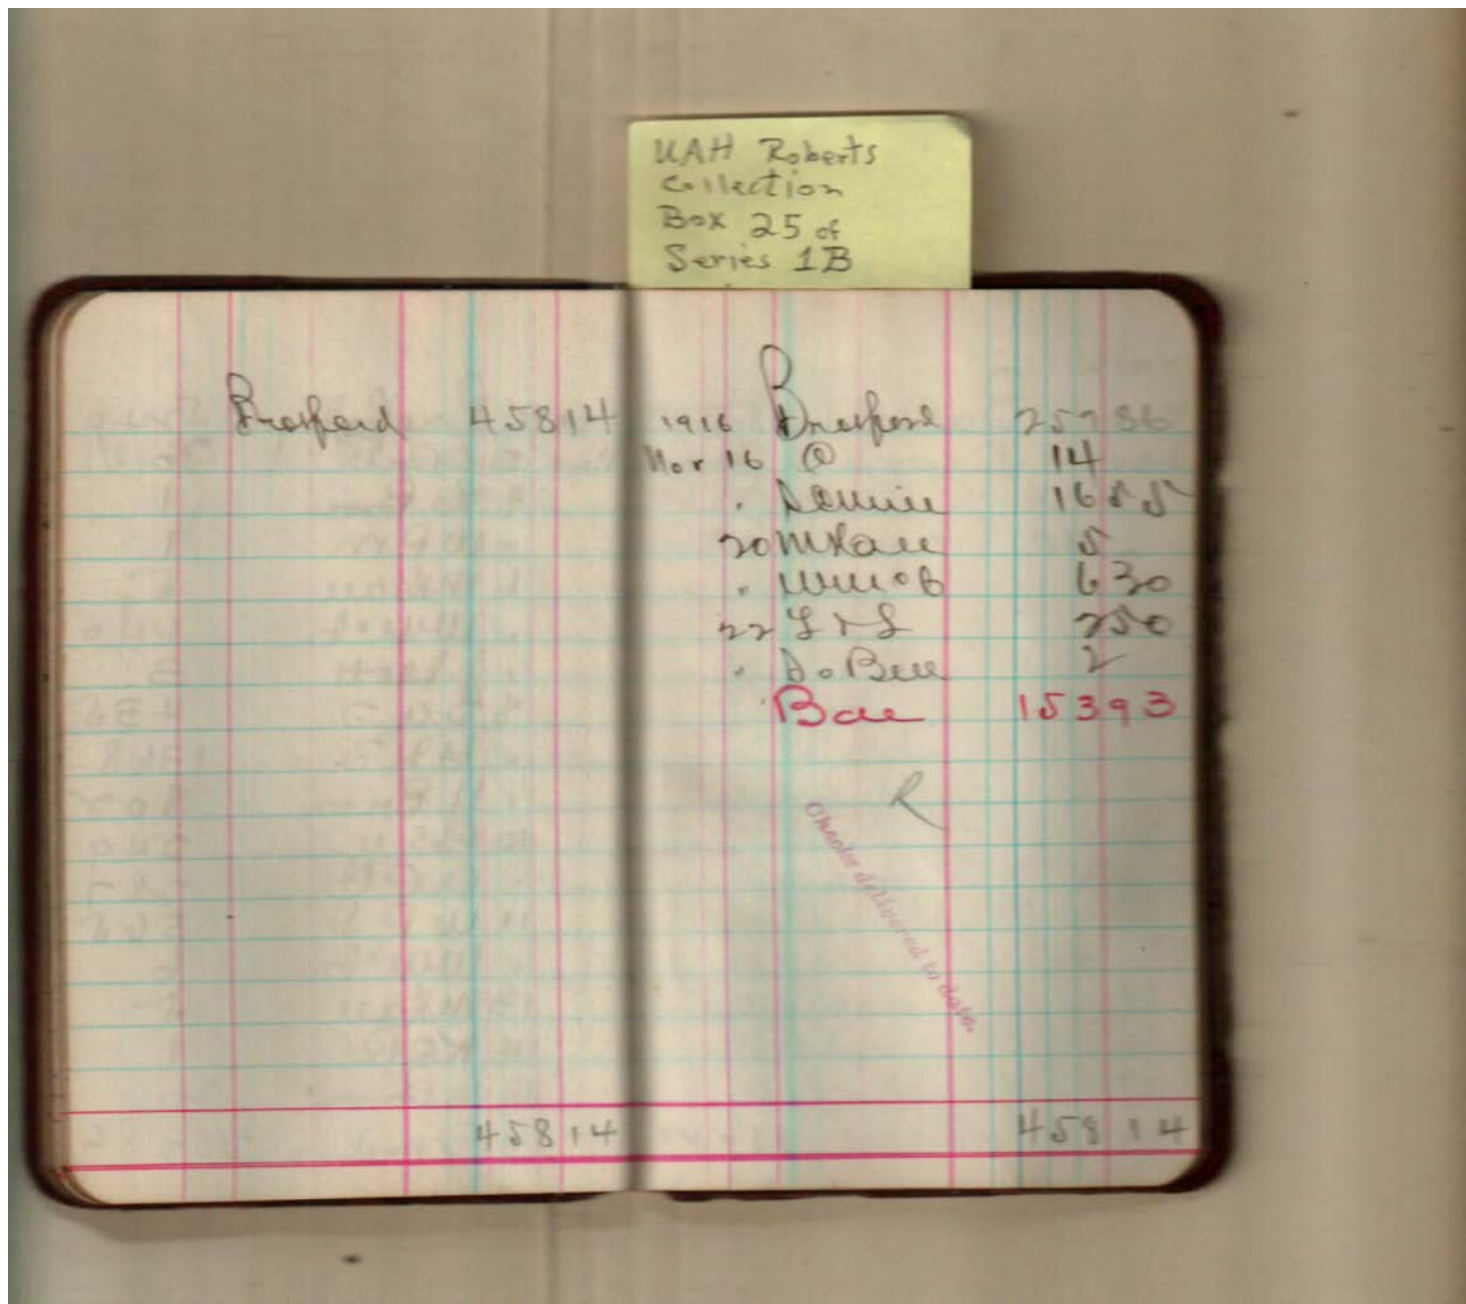 UAH Roberts
Collection
Box 25 of
Series 1B
Broford 458 14
458 14
B
1916 Broford 257 86
Nov 16 @ 14
" 16 55
20 5
" 6 30
22 L & L 2 50
" Do Bee 2
Bal 153 93
R
Checks delivered to date.
458 14